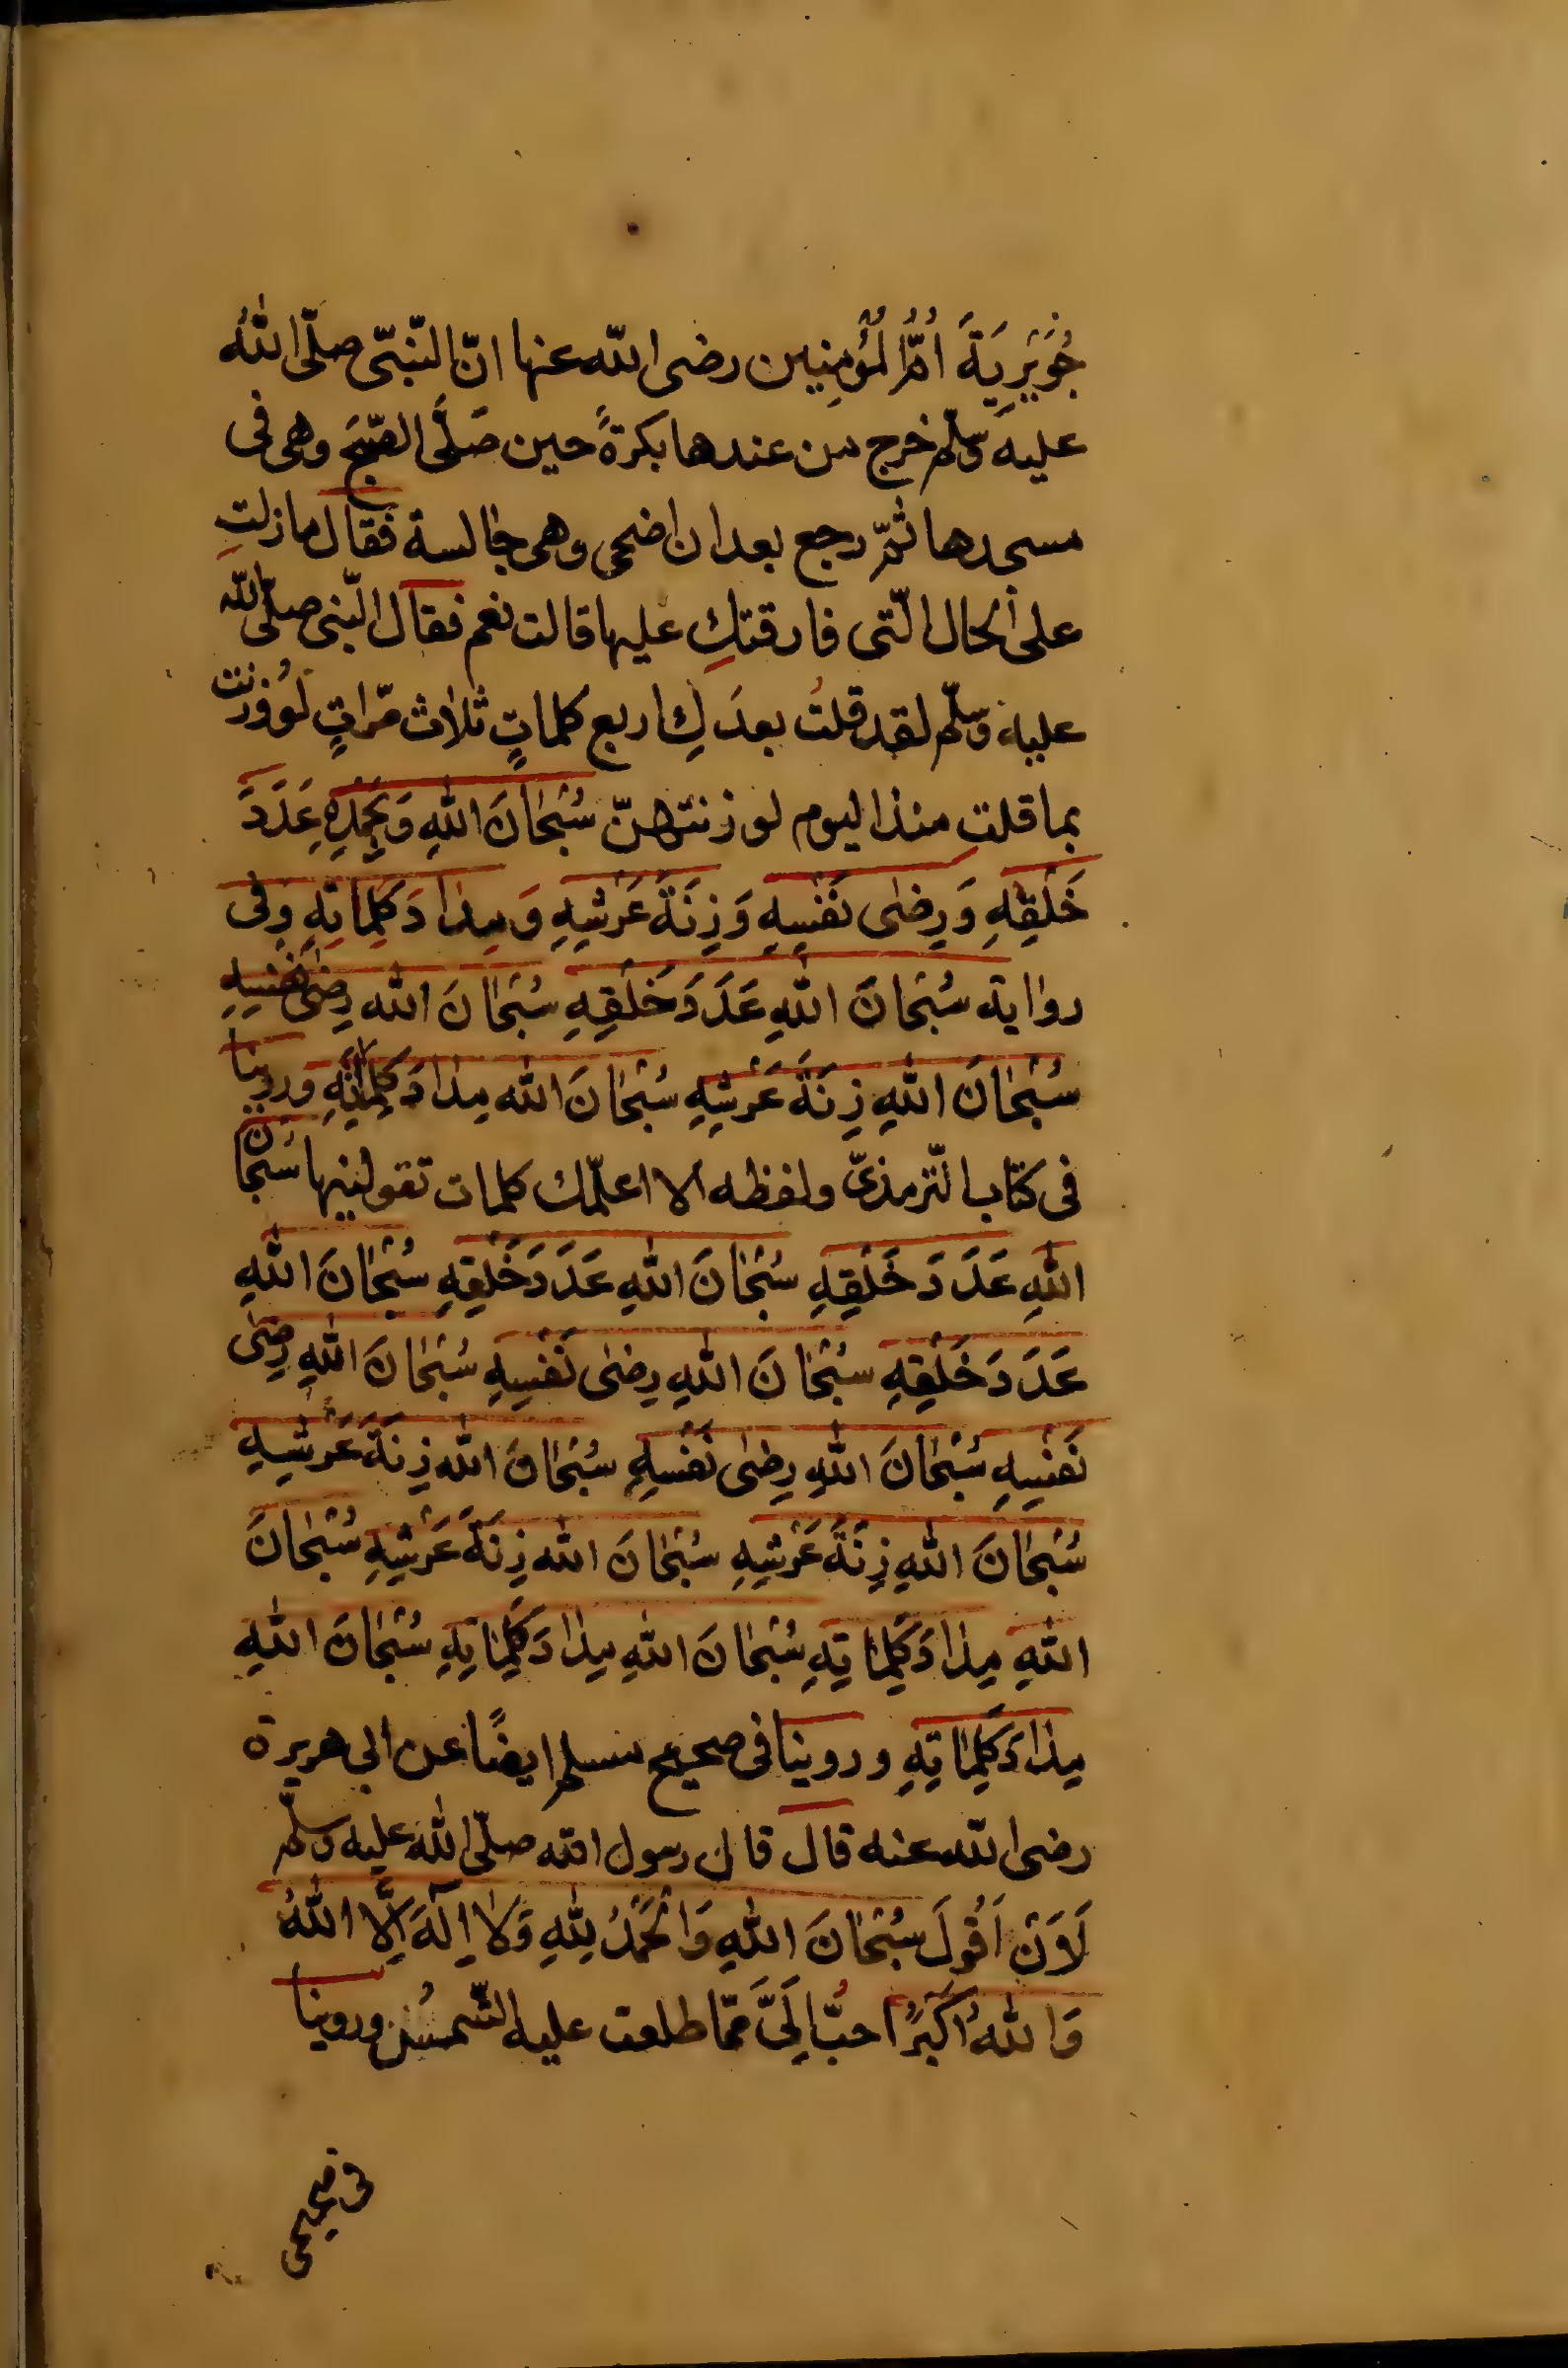 جُوَيْرِيَةَ اُمُّ الْمُؤْمِنِين رضى الله عنها انّ النّبىّ صلّى اللهُ
عليه وسلّم خرج من عندها بكرةً حين صَلَّى الصّبحَ وهى فى
مسجدها ثمّ رجع بعد ان اضحى وهى جالسة فقال مازلتِ
على الحال الّتى فارقتكِ عليها قالت نعم فقال النّبى صلّى الله
عليه وسلّم لقد قلتُ بعدَكِ اربع كلماتٍ ثلاث مرّاتٍ لَوْ وُزِنت
بما قلت منذ اليوم لوزنتهنّ سُبْحَانَ اللهِ وَبِحَمْدِهِ عَدَدَ
خَلْقِهِ وَرِضٰى نَفْسِهِ وَزِنَةَ عَرْشِهِ وَمِدَادَ كَلِمَاتِهِ وفى
رواية سُبْحَانَ اللهِ عَدَدَ خَلْقِهِ سُبْحَانَ الله رِضٰى نَفْسِهِ
سُبْحَانَ اللهِ زِنَةَ عَرْشِهِ سُبْحَانَ الله مِدَادَ كَلِمَاتِهِ وروينا
فى كتاب التّرمذىّ ولفظه الا اعلّمك كلمات تقولينها سُبْحَانَ
اللهِ عَدَدَ خَلْقِهِ سُبْحَانَ اللهِ عَدَدَ خَلْقِهِ سُبْحَانَ اللهِ
عَدَدَ خَلْقِهِ سُبْحَانَ اللهِ رِضٰى نَفْسِهِ سُبْحَانَ اللهِ رِضٰى
نَفْسِهِ سُبْحَانَ اللهِ رِضٰى نَفْسِهِ سُبْحَانَ الله زِنَةَ عَرْشِهِ
سُبْحَانَ اللهِ زِنَةَ عَرْشِهِ سُبْحَانَ الله زِنَةَ عَرْشِهِ سُبْحَانَ
اللهِ مِدَادَ كَلِمَاتِهِ سُبْحَانَ اللهِ مِدَادَ كَلِمَاتِهِ سُبْحَانَ اللهِ
مِدَادَ كَلِمَاتِهِ وروينا فى صحيح مسلم ايضًا عن ابى هريرة
رضى الله عنه قال قال رسول الله صلّى الله عليه وسلّم
لَاَنْ اَقُولَ سُبْحَانَ اللهِ وَالْحَمْدُ لِلّٰهِ وَلَا اِلٰهَ اِلَّا اللهُ
وَاللهُ اَكْبَرُ احبّ اِلَىَّ ممّا طلعت عليه الشّمسُ وروينا
فى صحيحى